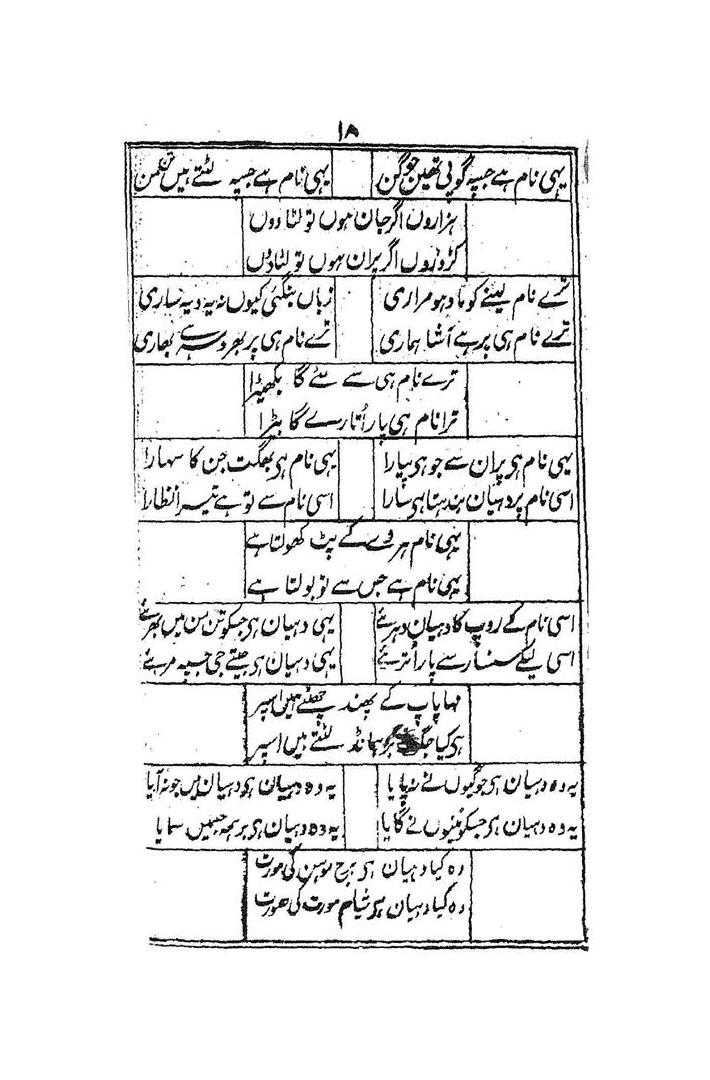 ۱۸
یہی نام ہے جسپہ گوپی تھین جوگن یہی نام ہے جسپہ لٹتے ہیں
ہزاروں اگر جان ہوں تو لٹا دوں
کڑوروں اگر پران ہوں تو لٹا دُوں
ترے نام لینے کو مادہو مراری زباں بنگئی کیوں نہ یہ دیہ ساری
ترے نام ہی پر ہے آشا ہماری ترے نام ہی پر بھروسہ ہے بھاری
ترے نام ہی سے مٹے گا بکھیڑا
ترا نام ہی پار اُتارے گا بیڑا
یہی نام ہر پران سے جو ہر پیارا یہی نام ہر بھگت جن کا سہارا
اسی نام پر دہیان بندہتا ہر سارا اسی نام سے تو ہے تیسر انظارا
یہی نام ہردے کے پٹ کھولتا ہے
یہی نام ہے جس سے تو بولتا ہے
اسی نام کے روپ کا دہیان دہریئے یہی دہیان ہر جسکو تن من میں بھریئے
اسی لیکے سنسار سے پار اُتریئے یہی دہیان ہر جیتے جی جسپہ مریئے
مہا پاپ کے پھند چھٹتے ہیں اسپر
ہر کیا جگ برہمانڈ لٹتے ہیں اسپر
یہ وہ دہیان ہر جوگیوں نے نہ پایا یہ وہ دہیان ہر دہیان میں جو نہ آیا
یہ وہ دہیان ہر جسکو منیوں نے گایا یہ وہ دہیان ہر برہمہ جسمیں سمایا
وہ کیا دہیان ہر برج موہن کی مورت
وہ کیا دہیان ہر شیام مورت کی صورت